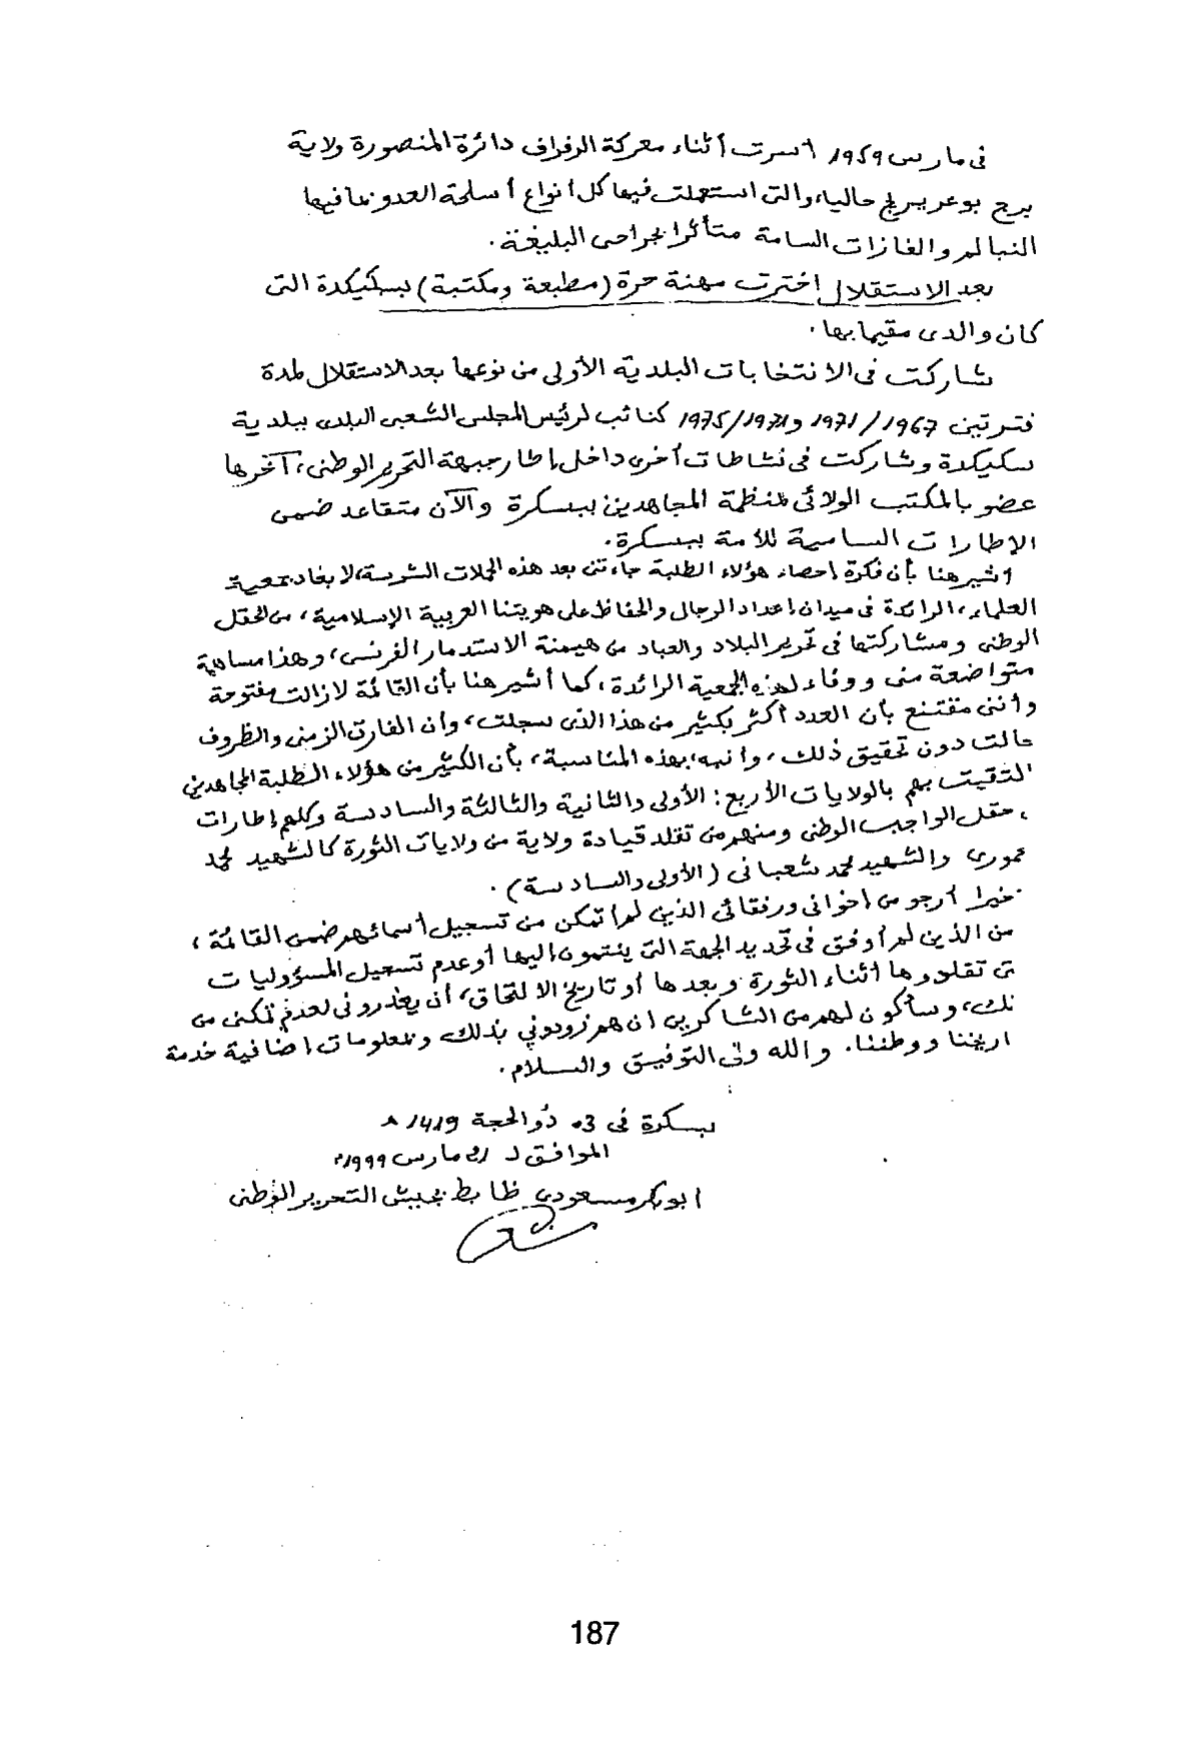 فى مارس 1959 أسرت أثناء معركة الرفراف دائرة المنصورة ولاية
برج بوعريريج حاليا، والتى استعملت فيها كل أنواع أسلحة العدو بما فيها
النبالم والغازات السامة متأثرا بجراحى البليغة.
بعد الاستقلال اخترت مهنة حرة (مطبعة ومكتبة) بسكيكدة التى
كان والدى مقيما بها.
شاركت فى الانتخابات البلدية الأولى من نوعها بعد الاستقلال لمدة
فترتين 1967/1971 و1971/1975 كنائب لرئيس المجلس الشعبى البلدى ببلدية
سكيكدة وشاركت فى نشاطات أخرى داخل إطار جبهة التحرير الوطنى، آخرها
عضو بالمكتب الولائى لمنظمة المجاهدين ببسكرة والآن متقاعد ضمن
الإطارات السامية للأمة ببسكرة.
أشير هنا بأن فكرة احصاء هؤلاء الطلبة جاءتنى بعد هذه الحملات الشرسة، لابعاد جمعية
العلماء، الرائدة فى ميدان إعداد الرجال والحفاظ على هويتنا العربية الإسلامية، من الحقل
الوطنى ومشاركتها فى تحرير البلاد والعباد من هيمنة الاستدمار الفرنسى، وهذا مساهمة
متواضعة منى ووفاء لهذه الجمعية الرائدة، كما أشير هنا بأن القائمة لازالت مفتوحة
وأننى مقتنع بأن العدد أكثر بكثير من هذا الذى سجلت، وأن الفارق الزمنى والظروف
حالت دون تحقيق ذلك، وأنبه، بهذه المناسبة، بأن الكثير من هؤلاء الطلبة المجاهدين
التقيت بهم بالولايات الأربع: الأولى والثانية والثالثة والسادسة وكلهم إطارات
، حقل الواجب الوطنى ومنهم من تقلد قيادة ولاية من ولايات الثورة كالشهيد محمد
عمورى والشهيد محمد شعبانى (الأولى والسادسة).
خيرا أرجو من اخوانى ورفقائى الذين لم أتمكن من تسجيل أسمائهم ضمن القائمة،
من الذين لم أوفق فى تحديد الجهة التى ينتمون إليها أو عدم تسجيل المسؤوليات
تى تقلدوها أثناء الثورة وبعدها أو تاريخ الالتحاق، أن يعذرونى لعدم تمكنى من
لك، وسأكون لهم من الشاكرين ان هم زودوني بذلك وبمعلومات اضافية خدمة
اريخنا ووطننا. والله ولى التوفيق والسلام.
بسكرة فى 03 ذو الحجة 1419 هـ
الموافق لـ 21 مارس 1999م
ابوبكر مسعودى ظابط بجيش التحرير الوطنى
187